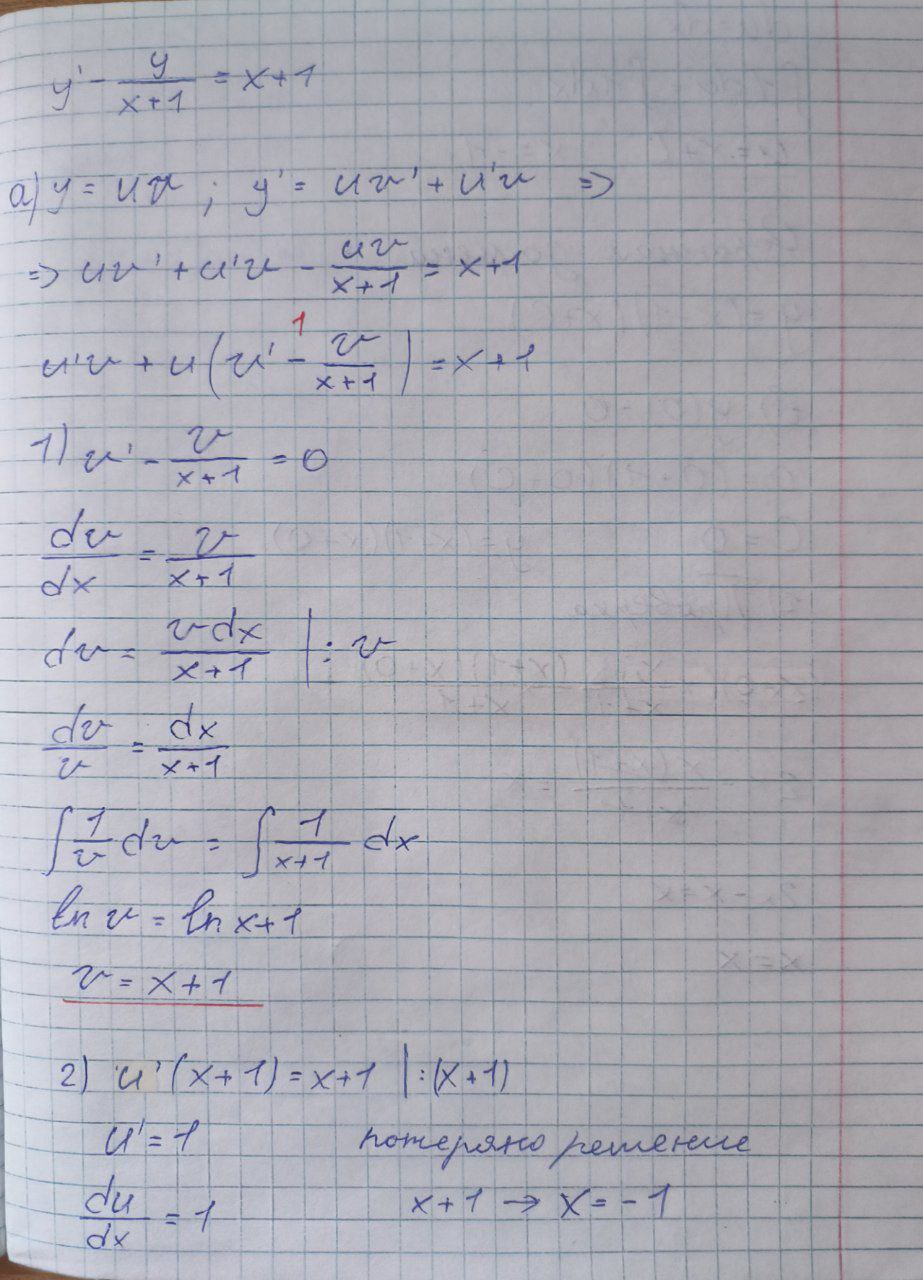 y' - y/(x+1) = x+1
а) y = uv ; y' = uv' + u'v ⇒
⇒ uv' + u'v - uv/(x+1) = x+1
1
u'v + u(v' - v/(x+1)) = x+1
1) v' - v/(x+1) = 0
dv/dx = v/(x+1)
dv = v dx/(x+1) | : v
dv/v = dx/(x+1)
∫ 1/v dv = ∫ 1/(x+1) dx
ln v = ln x+1
v = x+1
2) u'(x+1) = x+1 | :(x+1)
u' = 1 потеряно решение
du/dx = 1 x+1 → x = -1